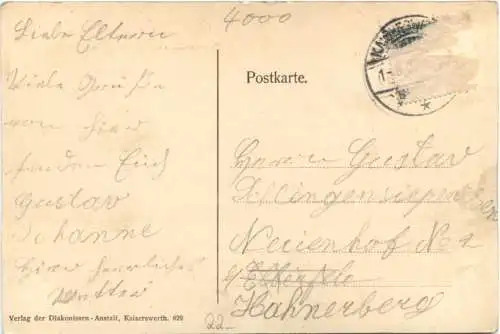 4000
Liebe Eltern
Viele Grüße
von hier
senden Euch
Gustav
Johanne
hier herrliches
Wetter
Postkarte.
Herrn Gustav
Neuenhof No 2
b/ Elberfeld
Hahnerberg
Verlag der Diakonissen-Anstalt, Kaiserswerth. 629
22-